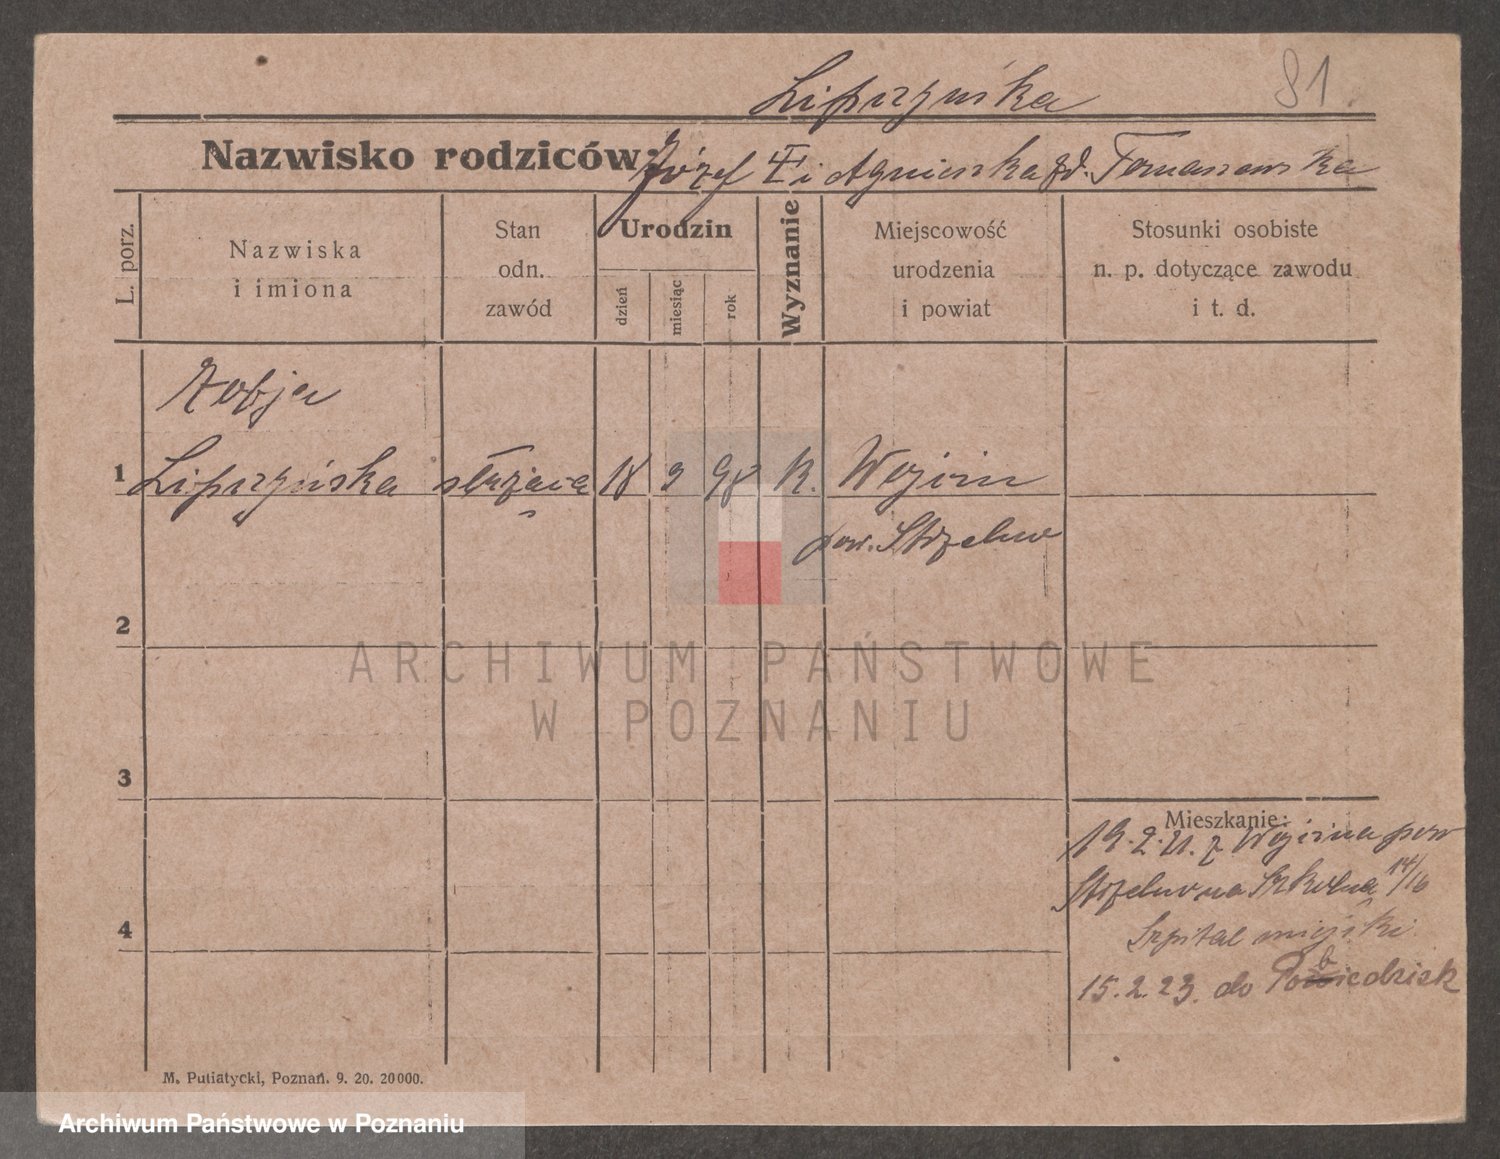 Lipczyńska 81
Nazwisko rodziców: Józef i Agnieszka zd. Tomaszewska
L. porz.
Nazwiska
i imiona
Stan
odn.
zawód
Urodzin
dzień
miesiąc
rok
Wyznanie
Miejscowość
urodzenia
i powiat
Stosunki osobiste
n. p. dotyczące zawodu
i t. d.
Zofja
1 Lipczyńska służąca 18 3 98 K. Wójcin
pow. Strzelno
2
3
4
Mieszkanie:
19.2.21. z Wójcina pow
Strzelno na Szkolna 14/16
Szpital miejski
15.2.23. do Pobiedzisk
M. Putiatycki, Poznań. 9. 20. 20000.
ARCHIWUM PAŃSTWOWE
W POZNANIU
Archiwum Państwowe w Poznaniu